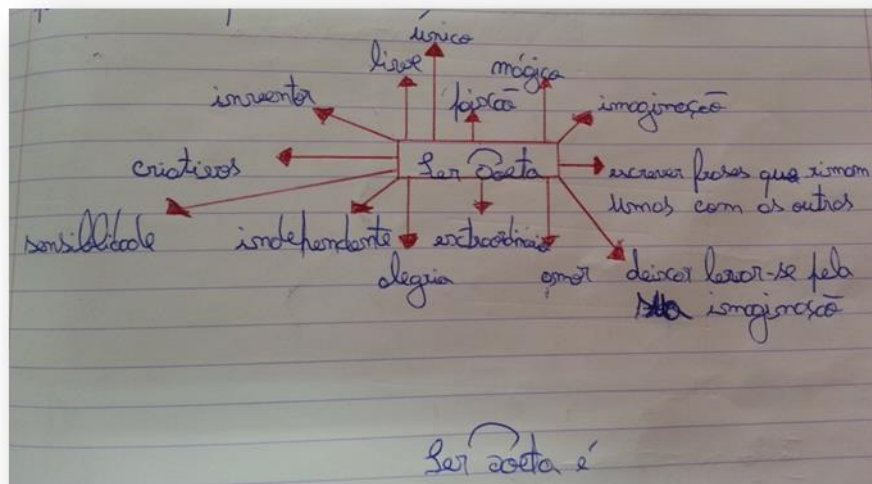 único
livre
mágico
inventor
paixão
imaginação
criativos
Ser poeta
escrever frases que rimam
umas com as outras
sensiblidade
independente
extraordinário
alegria
amor
deixar levar-se pela
imaginação
Ser poeta é